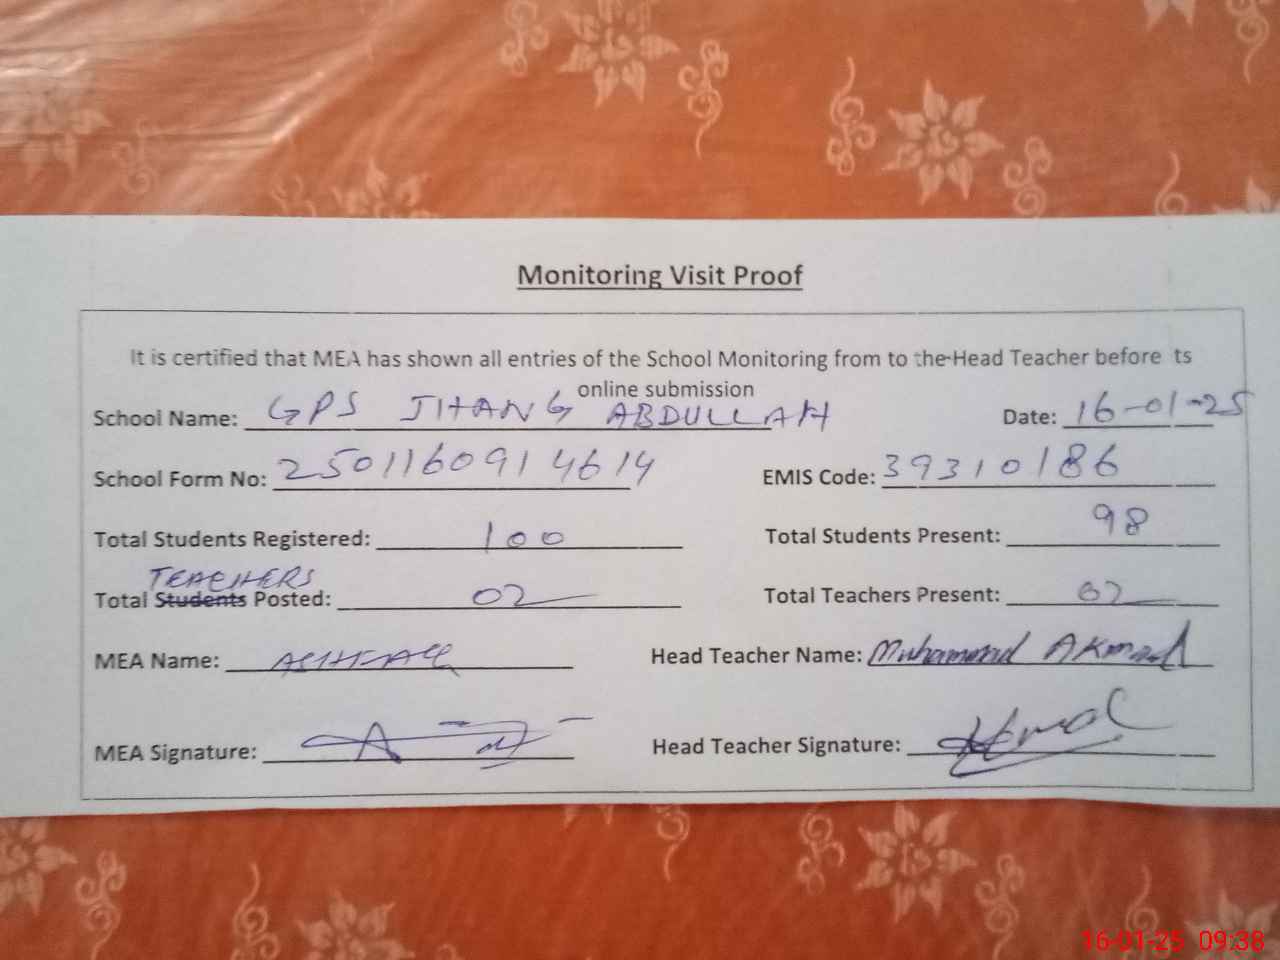 Monitoring Visit Proof
It is certified that MEA has shown all entries of the School Monitoring from to the Head Teacher before ts
online submission
School Name: GPS JHANG ABDULLAH Date: 16-01-25
School Form No: 2501160914614 EMIS Code: 39310186
Total Students Registered: 100 Total Students Present: 98
TEACHERS
Total Students Posted: 02 Total Teachers Present: 02
MEA Name: Head Teacher Name: Muhammad
MEA Signature: Head Teacher Signature:
16-01-25 09:38